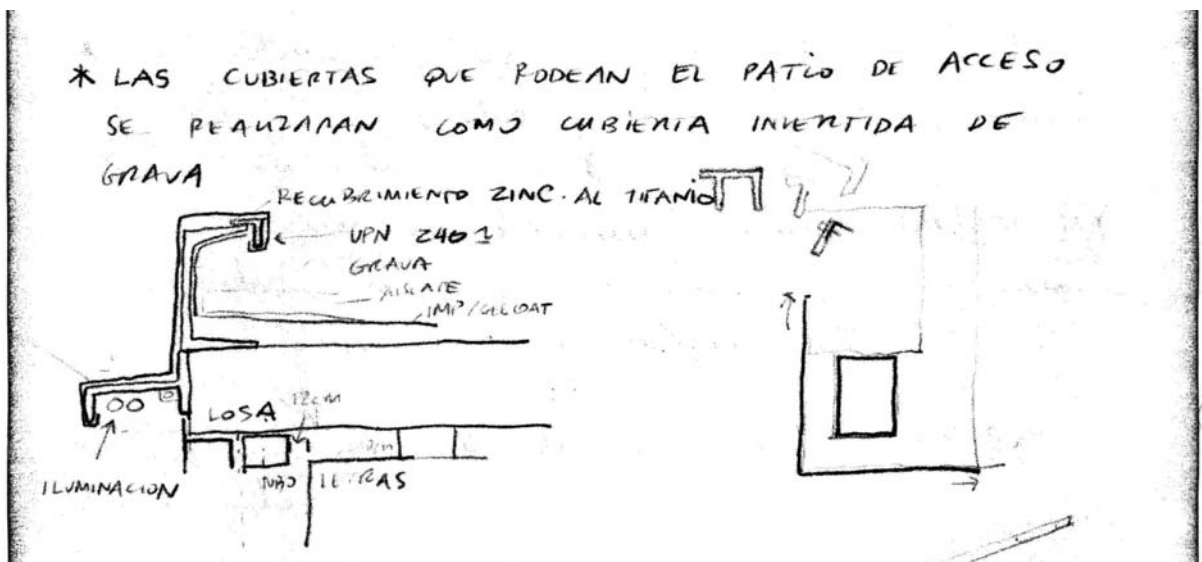 * LAS CUBIERTAS QUE RODEAN EL PATIO DE ACCESO
SE REALIZARAN COMO CUBIERTA INVERTIDA DE
GRAVA
RECUBRIMIENTO ZINC. AL TITANIO
UPN 240
GRAVA
AISLANTE
IMP/GELCOAT
12cm
LOSA
LETRAS
ILUMINACION